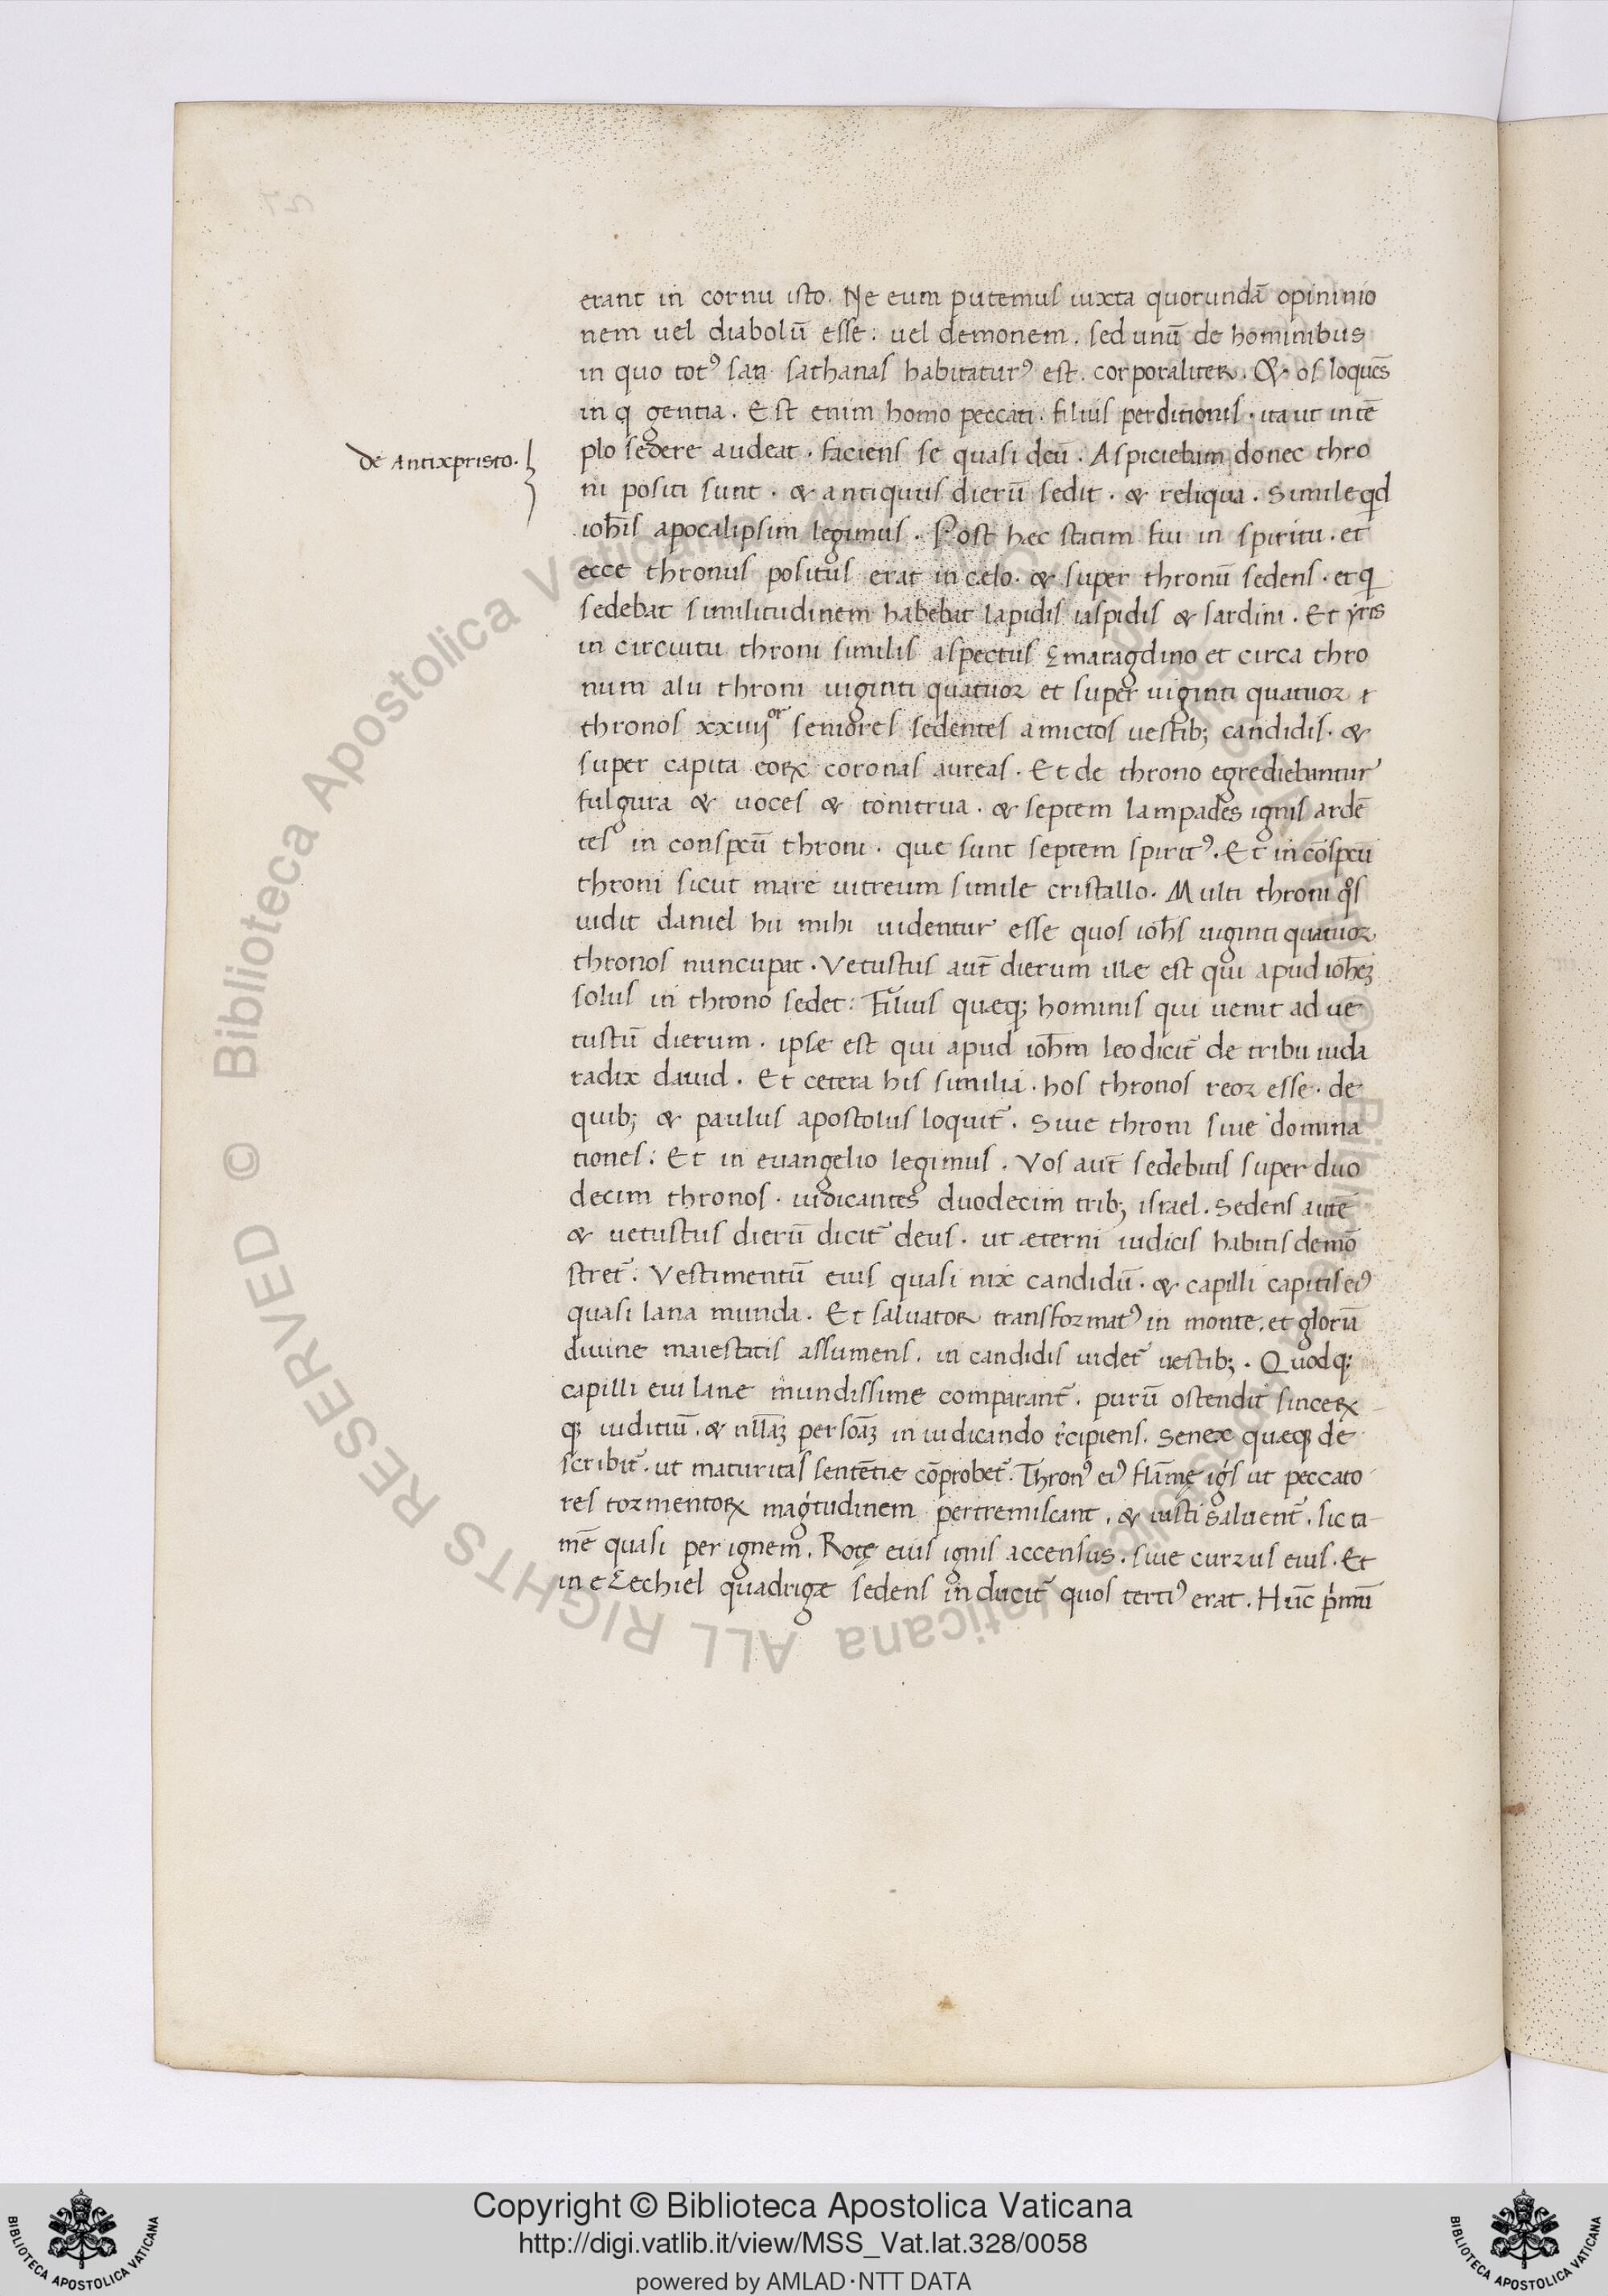 erant in cornu isto. Ne eum putemus iuxta quorundā opininio
nem uel diabolū esse: uel demonem. sed unū de hominibus
in quo totꝰ san sathanas habitaturꝰ est. corporaliter. & os loquēs
in q gentia. Est enim homo peccati. filius perditionis. ita ut in tē
de Antixpristo.
plo sedere audeat. faciens se quasi deū. Aspiciebam donec thro
ni positi sunt. & antiquus dierū sedit. & reliqua. Simile qd
ioh̄is apocalipsim legimus. Post hec statim fui in spiritu. et
ecce thronus positus erat in cælo. & super thronū sedens. et q
sedebat similitudinem habebat lapidis iaspidis & sardini. Et yris
in circuitu throni similis aspectus smaragdino et circa thro
num alii throni uiginti quatuor et super uiginti quatuor
thronos xxiiij or seniores sedentes amictos uestib; candidis. &
super capita eoꝝ coronas aureas. Et de throno egrediebantur
fulgura & uoces & tonitrua. & septem lampades ignis ardē
tes in conspcū throni. quæ sunt septem spiritꝰ. Et in cōspcū
throni sicut mare uitreum simile cristallo. Multi throni qͦs
uidit daniel hii mihi uidentur esse quos ioh̄s uiginti quatuor
thronos nuncupat. Vetustus aut̄ dierum ille est qui apud ioh̄eꝫ
solus in throno sedet: Filius quæq; hominis qui uenit ad ue
tustū dierum. ipse est qui apud ioh̄m leo dicit̄ de tribu iuda
radix dauid. Et cetera his similia. hos thronos reor esse. de
quib; & paulus apostolus loquit̄. Siue throni siue domina
tiones: Et in euangelio legimus. Vos aut̄ sedebitis super duo
decim thronos. iudicantes duodecim trib; israel. Sedens autē
& uetustus dierū dicit̄ deus. ut æterni iudicis habitis demō
stret̄. Vestimentū eius quasi nix candidū. & capilli capitis eiꝰ
quasi lana munda. Et saluator transformatꝰ in monte. et gloriā
diuine maiestatis assumens. in candidis uidet̄ uestib;. Quodq;
capilli eiu lanæ mundissime comparant̄. purū ostendit sinceꝝ
q; iuditiū. & nll̄aꝫ persōaꝫ in iudicando rͨcipiens. Senex quæq; de
scribit̄. ut maturitas sentētiæ cōprobet̄. Thronꝰ eiꝰ flāmę igͥs ut peccato
res tormentoꝝ magͥtudinem pertremiscant. & iusti saluent̄. sic ta
mē quasi per ignem. Rotę eius ignis accensus. siue currus eius. Et
in eZechiel quadrigæ sedens inducit̄ quos tertiꝰ erat. Hūc pͥmū
Copyright © Biblioteca Apostolica Vaticana
http://digi.vatlib.it/view/MSS_Vat.lat.328/0058
powered by AMLAD·NTT DATA